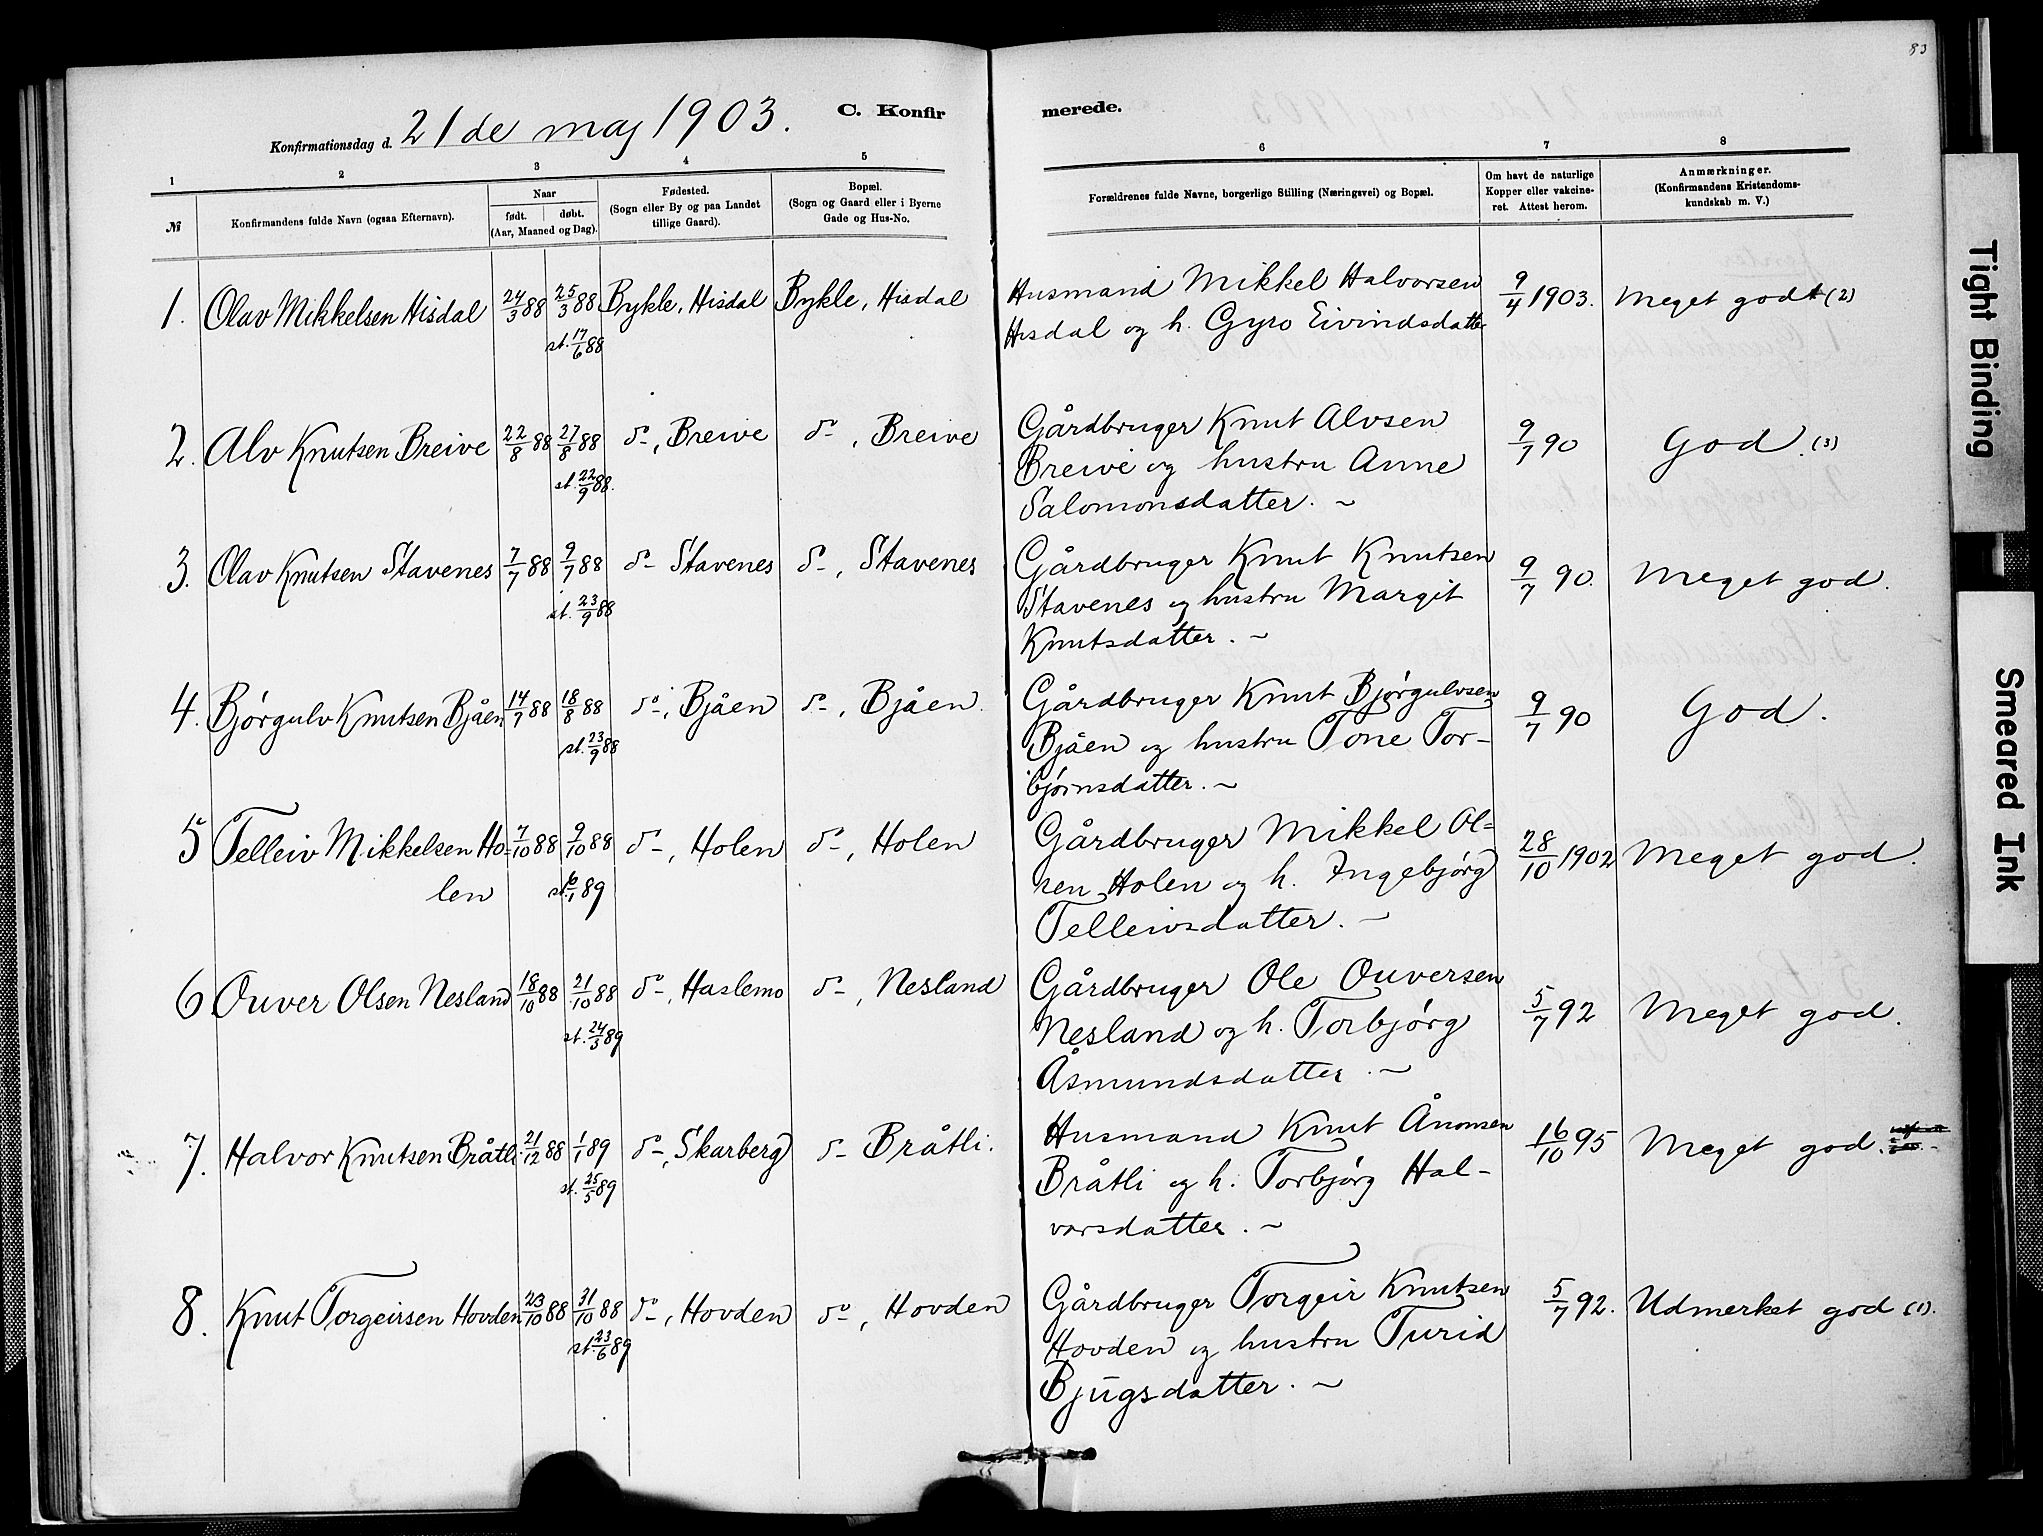 83
Konfirmationsdag d. 21de maj 1903. C. Konfirmerede.
1 2 3 4 5 6 7 8
№ Konfirmandens fulde Navn (ogsaa Efternavn). Naar født. døbt. (Aar, Maaned og Dag). Fødested. (Sogn eller By og paa Landet tillige Gaard). Bopæl. (Sogn og Gaard eller i Byerne Gade og Hus-No. Forældrenes fulde Navne, borgerlige Stilling (Næringsvei) og Bopæl. Om havt de naturlige Kopper eller vakcineret. Attest herom. Anmærkninger. (Konfirmandens Kristendomskundskab m. V.)
1. Olav Mikkelsen Hisdal 24/3 88 25/3 88 Bykle, Hisdal Bykle, Hisdal Husmand Mikkel Halvorsen 9/4 1903. Meget godt (2)
st. 17/6 88 Hisdal og h. Gyro Eivindsdatter
2. Alv Knutsen Breive 22/8 88 27/8 88 do, Breive do, Breive Gårdbruger Knut Alvsen 9/7 90 God. (3)
st. 22/9 88. Breive og hustru Anne
Salomonsdatter. ~
3. Olav Knutsen Stavenes 7/7 88 9/7 88 do Stavenes do, Stavenes Gårdbruger Knut Knutsen 9/7 90. Meget god.
st. 23/9 88 Stavenes og hustru Margit
Knutsdatter. ~
4. Bjørgulv Knutsen Bjåen 14/7 88 18/8 88 do, Bjåen do, Bjåen. Gårdbruger Knut Bjørgulvsen 9/7 90 God.
st. 23/9 88 Bjåen og hustru Tone Tor-
bjørnsdatter. ~
5 Telleiv Mikkelsen Ho- 7/10 88 9/10 88 do, Holen do, Holen Gårdbruger Mikkel Ol= 28/10 1902 Meget god.
len st. 6/1 89 sen Holen og h. Ingebjørg
Telleivsdatter. ~
6 Ouver Olsen Nesland 18/10 88 21/10 88 do, Haslemo do, Nesland Gårdbruger Ole Ouversen 5/7 92 Meget god.
st. 24/3 89 Nesland og h. Torbjørg
Åsmundsdatter. ~
7. Halvor Knutsen Bråtli 21/12 88 1/1 89 do, Skarberg do Bråtli. Husmand Knut Ånonsen 16/10 95 Meget god.
st. 25/5 89 Bråtli og h. Torbjørg Hal-
vorsdatter. ~
8. Knut Torgeirsen Hovden 23/10 88 31/10 88 do, Hovden do, Hovden Gårdbruger Torgeir Knutsen 5/7 92. Udmerket god (1).
st. 23/6 89 Hovden og hustru Turid
Bjugsdatter. ~
Tight Binding
Smeared Ink